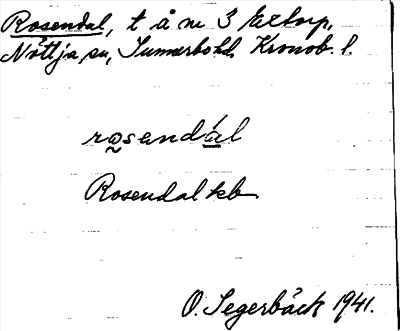 Rosendal, t å nr 3 Extorp,
Nöttja sn, Sunnerbo hd. Kronob. l.
rosendál
Rosendal kb
O. Segerbäck 1941.